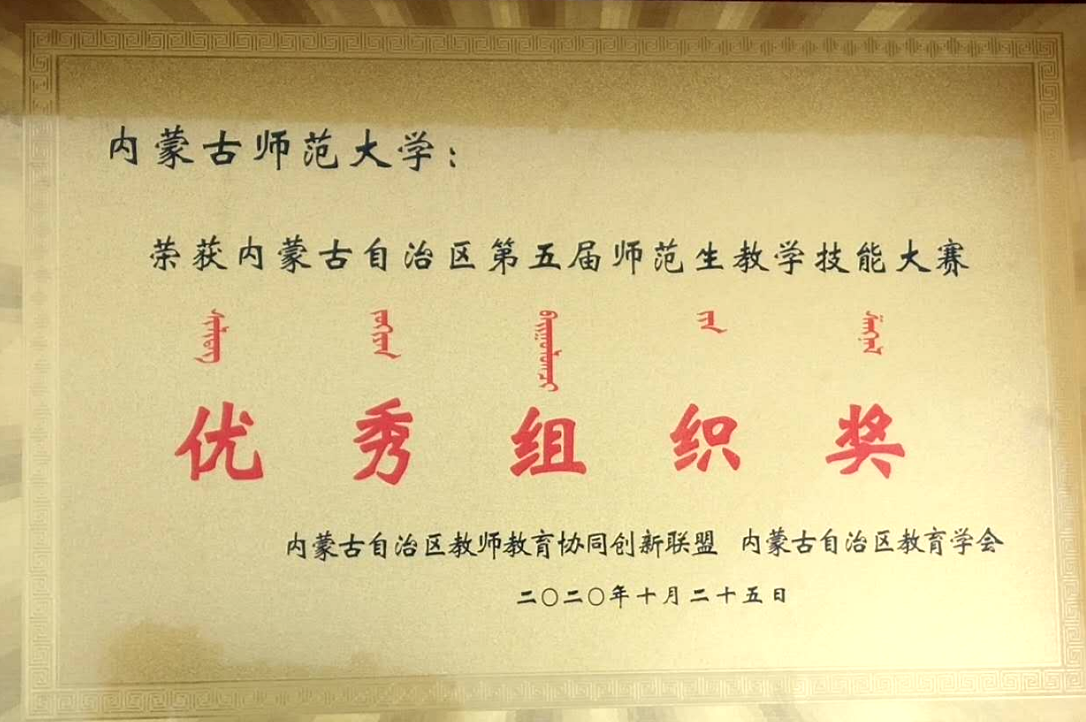 内蒙古师范大学：
荣获内蒙古自治区第五届师范生教学技能大赛
优秀组织奖
内蒙古自治区教师教育协同创新联盟 内蒙古自治区教育学会
二〇二〇年十月二十五日